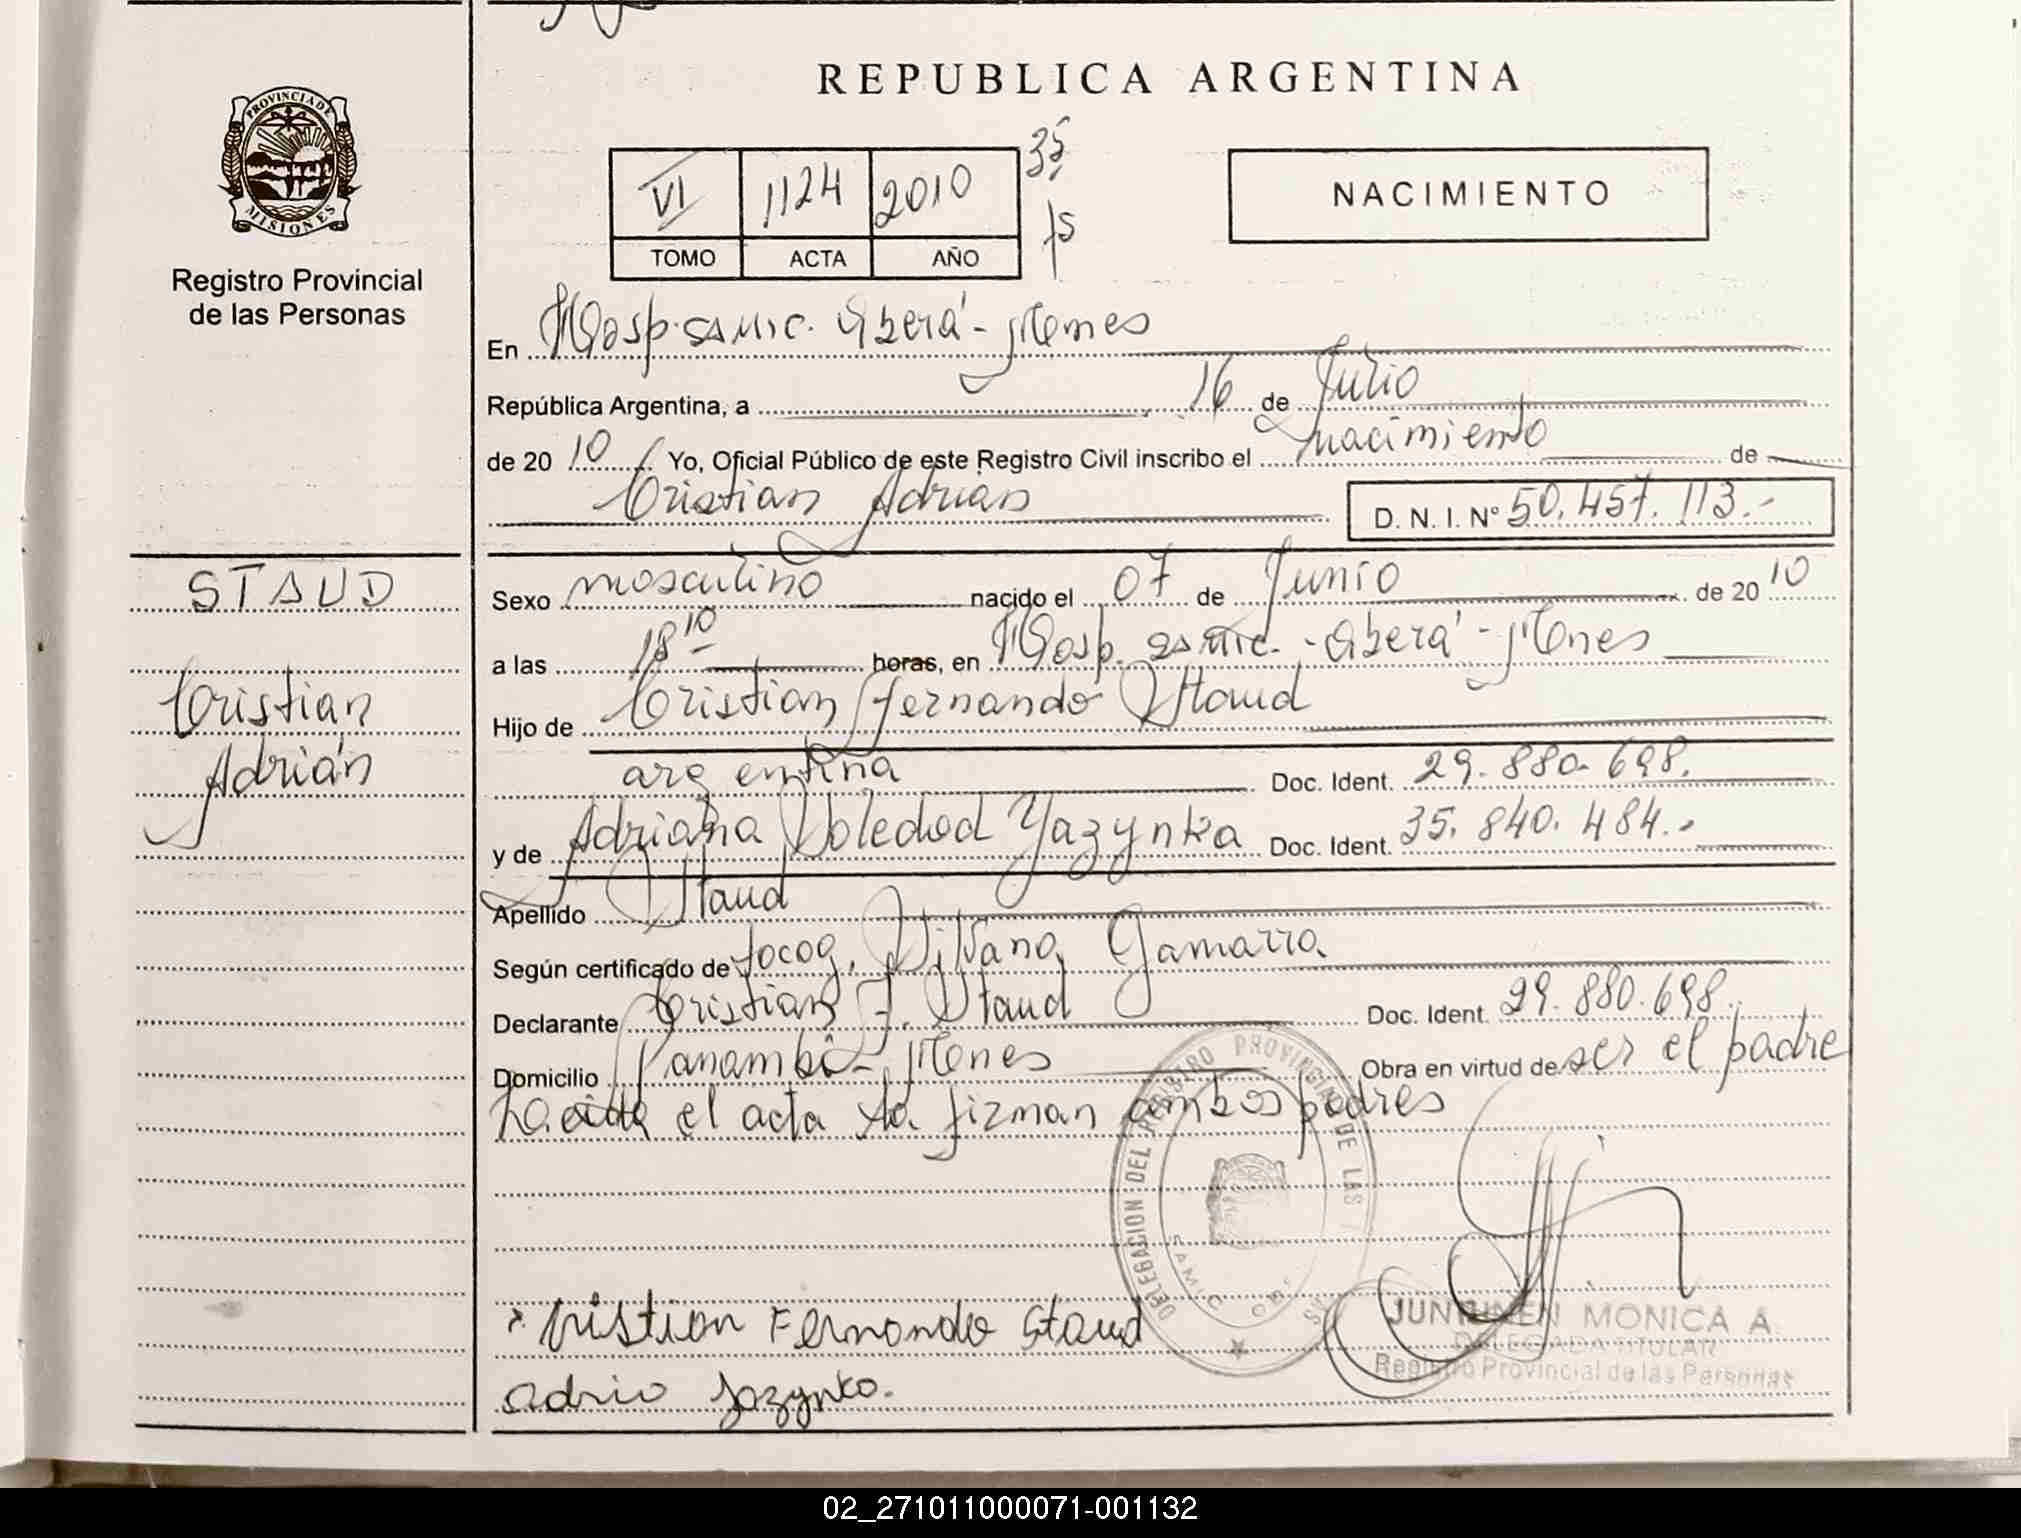 REPUBLICA ARGENTINA
PROVINCIA DE
MISIONES
Registro Provincial
de las Personas
VI 1124 2010
TOMO ACTA AÑO
35
NACIMIENTO
En Hosp. SAMIC. Oberá - Mnes
República Argentina, a 16 de Julio
de 2010 Yo, Oficial Público de este Registro Civil inscribo el nacimiento de
Cristian Adrián D. N. I. Nº 50.457.113.-
STAUD
Cristian
Adrián
Sexo masculino nacido el 07 de Junio de 2010
a las 18 10 horas, en Hosp. SAMIC. - Oberá - Mnes
Hijo de Cristian Fernando Staud
argentina Doc. Ident. 29.880.698.
y de Adriana Soledad Yazynka Doc. Ident. 35.840.484.-
Apellido Staud
Según certificado de Gamarra
Declarante Cristian F. Staud Doc. Ident. 29.880.698.
Domicilio Panambí - Mnes Obra en virtud de ser el padre
el acta la firman ambos padres
DELEGACION DEL REGISTRO PROVINCIAL DE LAS
SAMIC
Cristian Fernando Staud
JUN MONICA A.
DELEGADA TITULAR
Registro Provincial de las Personas
02_271011000071-001132